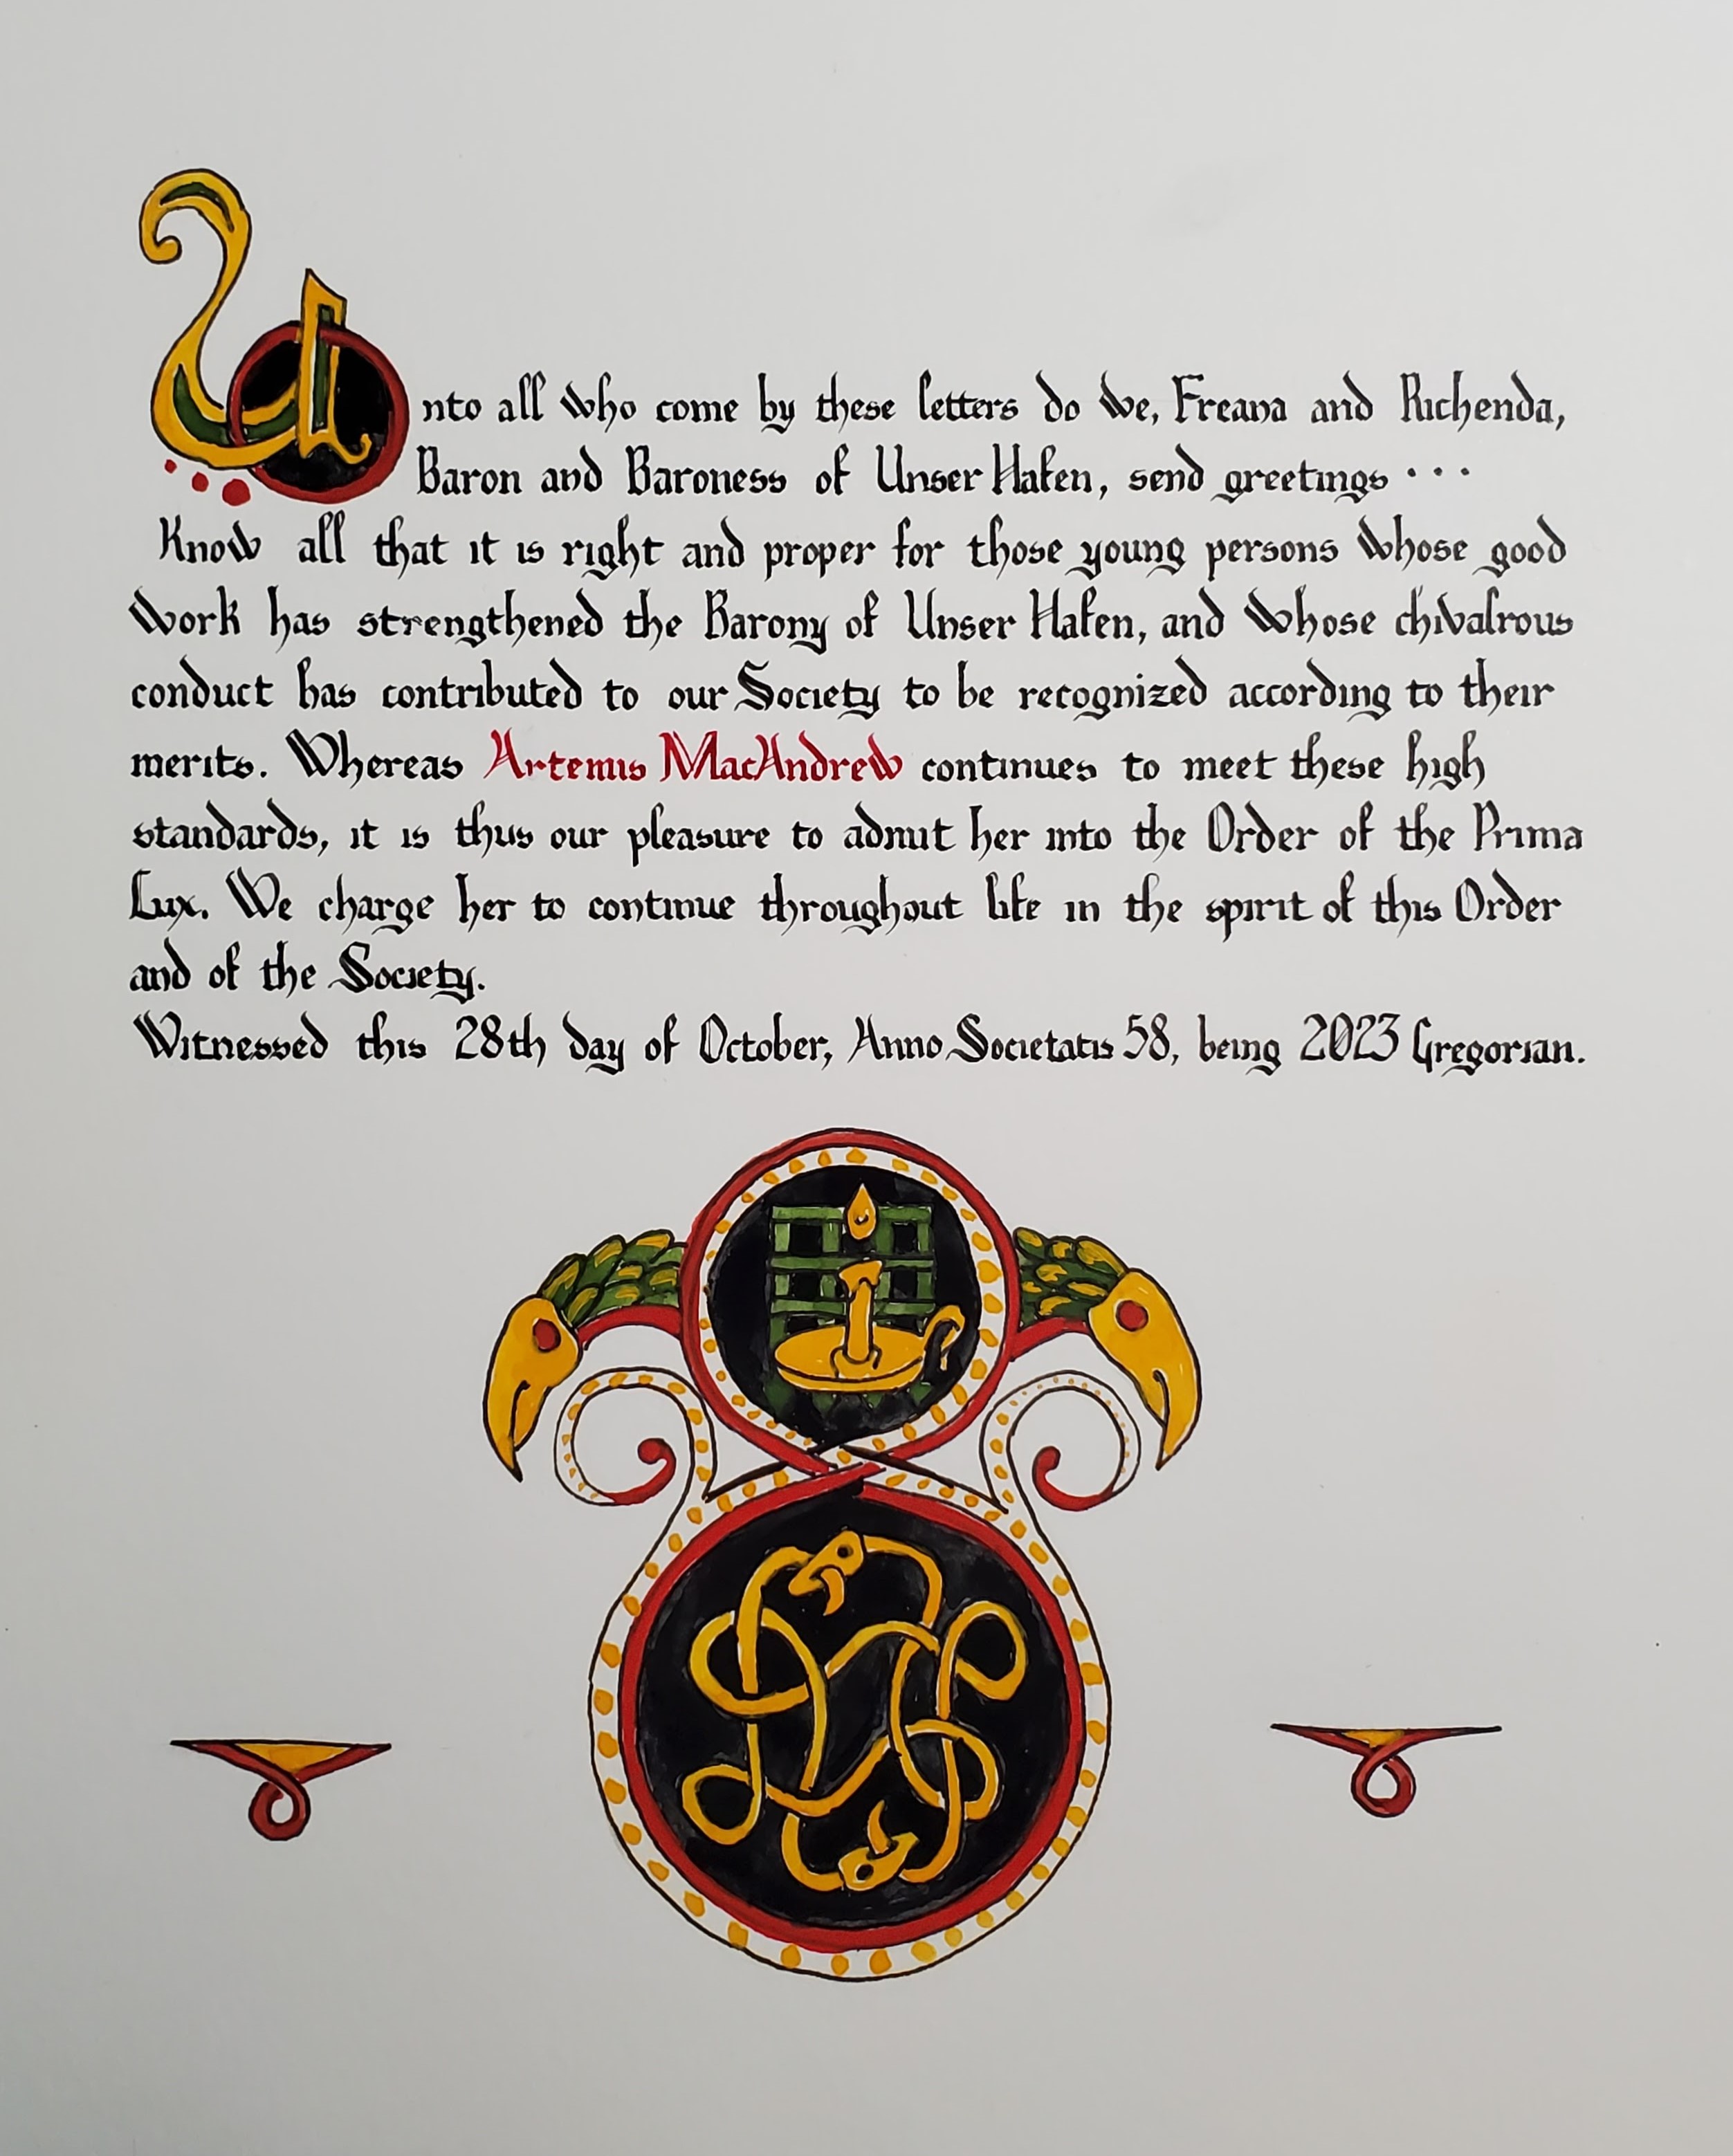 Unto all who come by these letters do We, Freana and Richenda,
Baron and Baroness of Unser Hafen, send greetings...
Know all that it is right and proper for those young persons whose good
work has strengthened the Barony of Unser Hafen, and whose chivalrous
conduct has contributed to our Society to be recognized according to their
merits. Whereas Artemis MacAndrew continues to meet these high
standards, it is thus our pleasure to admit her into the Order of the Prima
Lux. We charge her to continue throughout life in the spirit of this Order
and of the Society.
Witnessed this 28th day of October, Anno Societatis 58, being 2023 Gregorian.